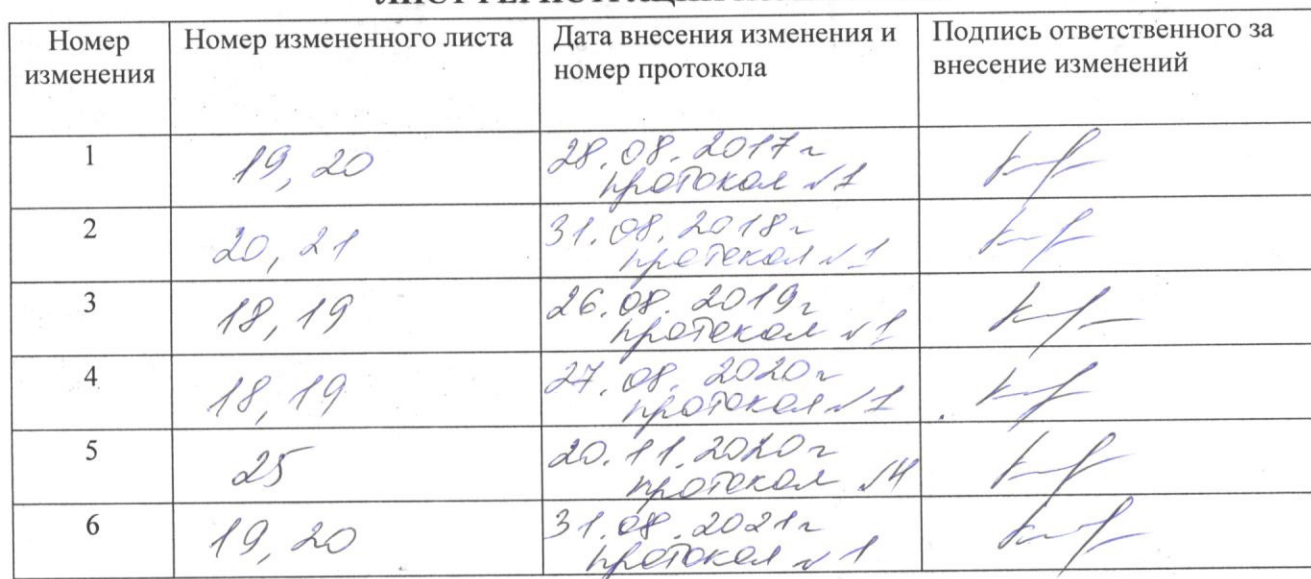 ЛИСТ РЕГИСТРАЦИИ
Номер изменения Номер измененного листа Дата внесения изменения и номер протокола Подпись ответственного за внесение изменений
1 19, 20 28.08.2017г
протокол №1
2 20, 21 31.08.2018г
протокол №1
3 18, 19 26.08.2019г
протокол №1
4 18, 19 27.08.2020г
протокол №1
5 25 20.11.2020г
протокол №4
6 19, 20 31.08.2021г
протокол №1